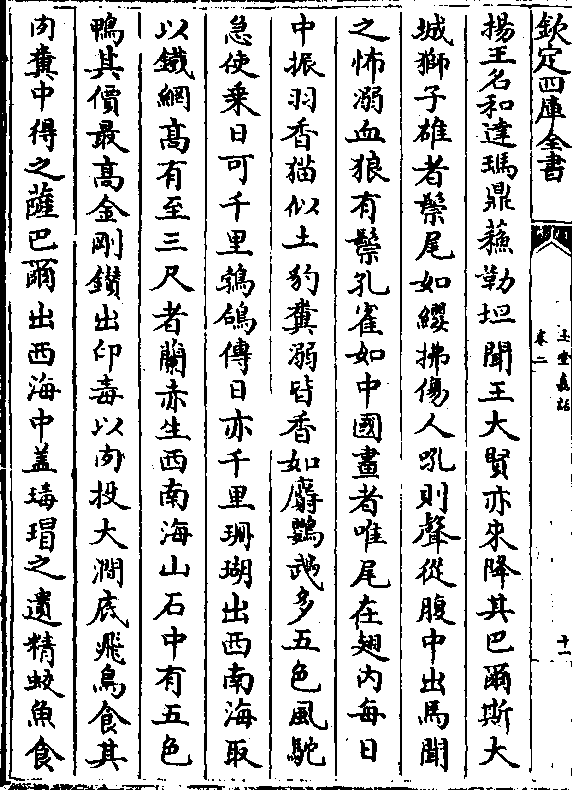 欽定四庫全書
玉堂嘉話
卷二
十一
揚王名和達瑪鼎蘓勒坦聞王大賢亦來降其巴爾斯大
城獅子雄者鬃尾如纓拂傷人吼則聲從腹中出馬聞
之怖溺血狼有鬃孔雀如中國畫者唯尾在翅内每日
中振羽香猫似土豹糞溺皆香如麝鸚鵡多五色風駝
急使乗日可千里鶉鴿傳日亦千里珊瑚出西南海取
以鐵網髙有至三尺者蘭赤生西南海山石中有五色
鴨其價最髙金剛鑚出印毒以肉投大澗底飛鳥食其
肉糞中得之薩巴爾出西海中蓋瑇瑁之遺精蛟魚食